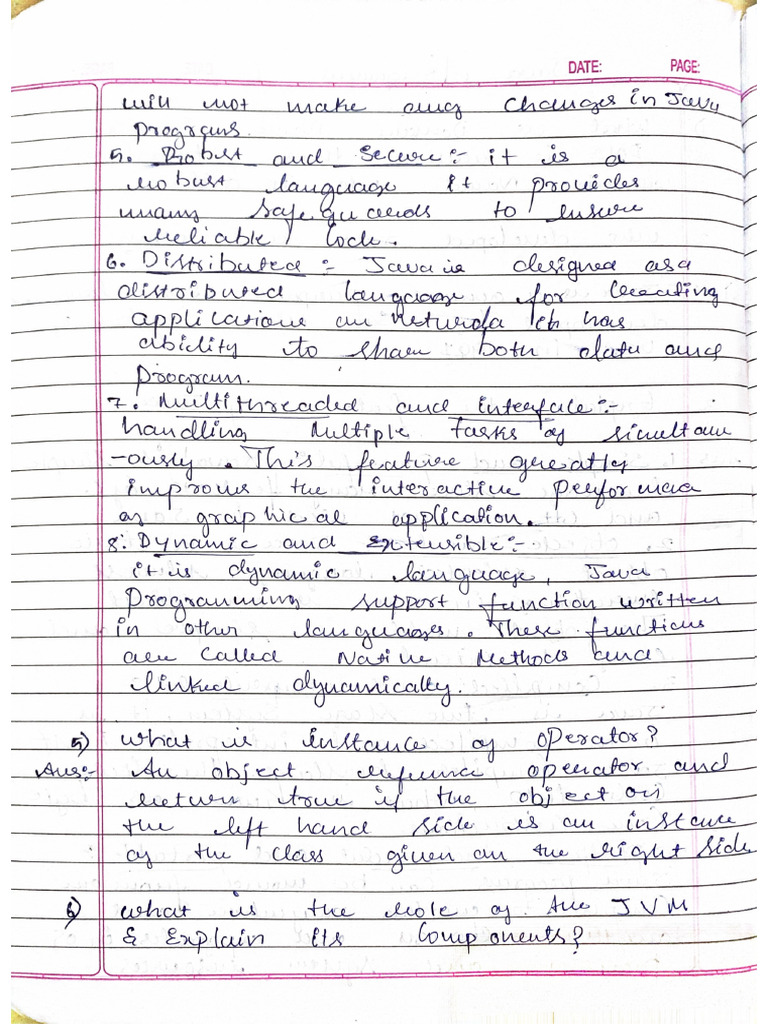 DATE: PAGE:
will not make any changes in Java
programs.
5. Robust and Secure:- it is a
robust language it provides
many safeguards to ensure
reliable code.
6. Distributed:- Java is designed as a
distributed language for creating
applications on it has
ability to share both data and
program.
7. Multithreaded and interface:-
handling Multiple Tasks of simultan
-ously. This feature greatly
improves the interactive performance
of graphical application.
8. Dynamic and extensible:-
it is dynamic language, Java
Programming support function written
in other languages. These functions
are called Native Methods and
linked dynamically.
5) what is instance of operator?
Ans:- An object reference operator and
return true if the object on
the left hand side is an instance
of the class given on the right side
6) what is the role of the JVM
& Explain its Components?